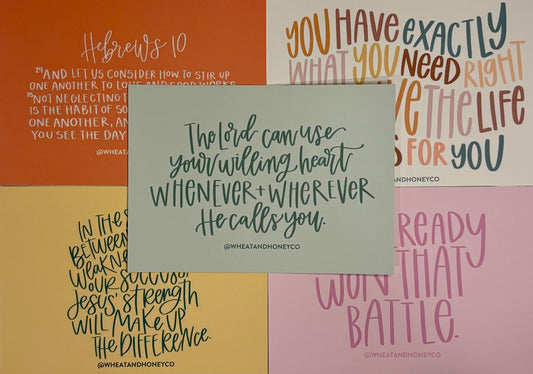 Hebrews 10
24 AND LET US CONSIDER HOW TO STIR UP
ONE ANOTHER TO LOVE AND GOOD WORKS
25 NOT NEGLECTING
IS THE HABIT OF
ONE ANOTHER,
YOU SEE THE DAY
@WHEATANDHONEYCO
YOU HAVE EXACTLY
WHAT YOU NEED RIGHT
THE LIFE
FOR YOU
The Lord can use
your willing heart
WHENEVER + WHEREVER
He calls you.
@WHEATANDHONEYCO
IN THE
BETWEEN
OUR SUCCESS,
JESUS' STRENGTH
WILL MAKE UP
THE DIFFERENCE.
@WHEATANDHONEYCO
WON THAT
BATTLE.
@WHEATANDHONEYCO